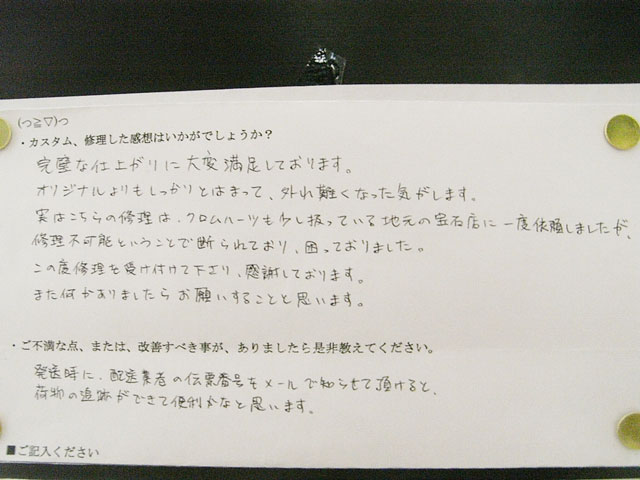 (つ≧▽)つ
・カスタム、修理した感想はいかがでしょうか？
完璧な仕上がりに大変満足しております。
オリジナルよりもしっかりとはまって、外れ難くなった気がします。
実はこちらの修理は、クロムハーツも少し扱っている地元の宝石店に一度依頼しましたが、
修理不可能ということで断られており、困っておりました。
この度修理を受け付けて下さり、感謝しております。
また何かありましたらお願いすることと思います。
・ご不満な点、または、改善すべき事が、ありましたら是非教えてください。
発送時に、配送業者の伝票番号をメールで知らせて頂けると、
荷物の追跡ができて便利かなと思います。
■ご記入ください